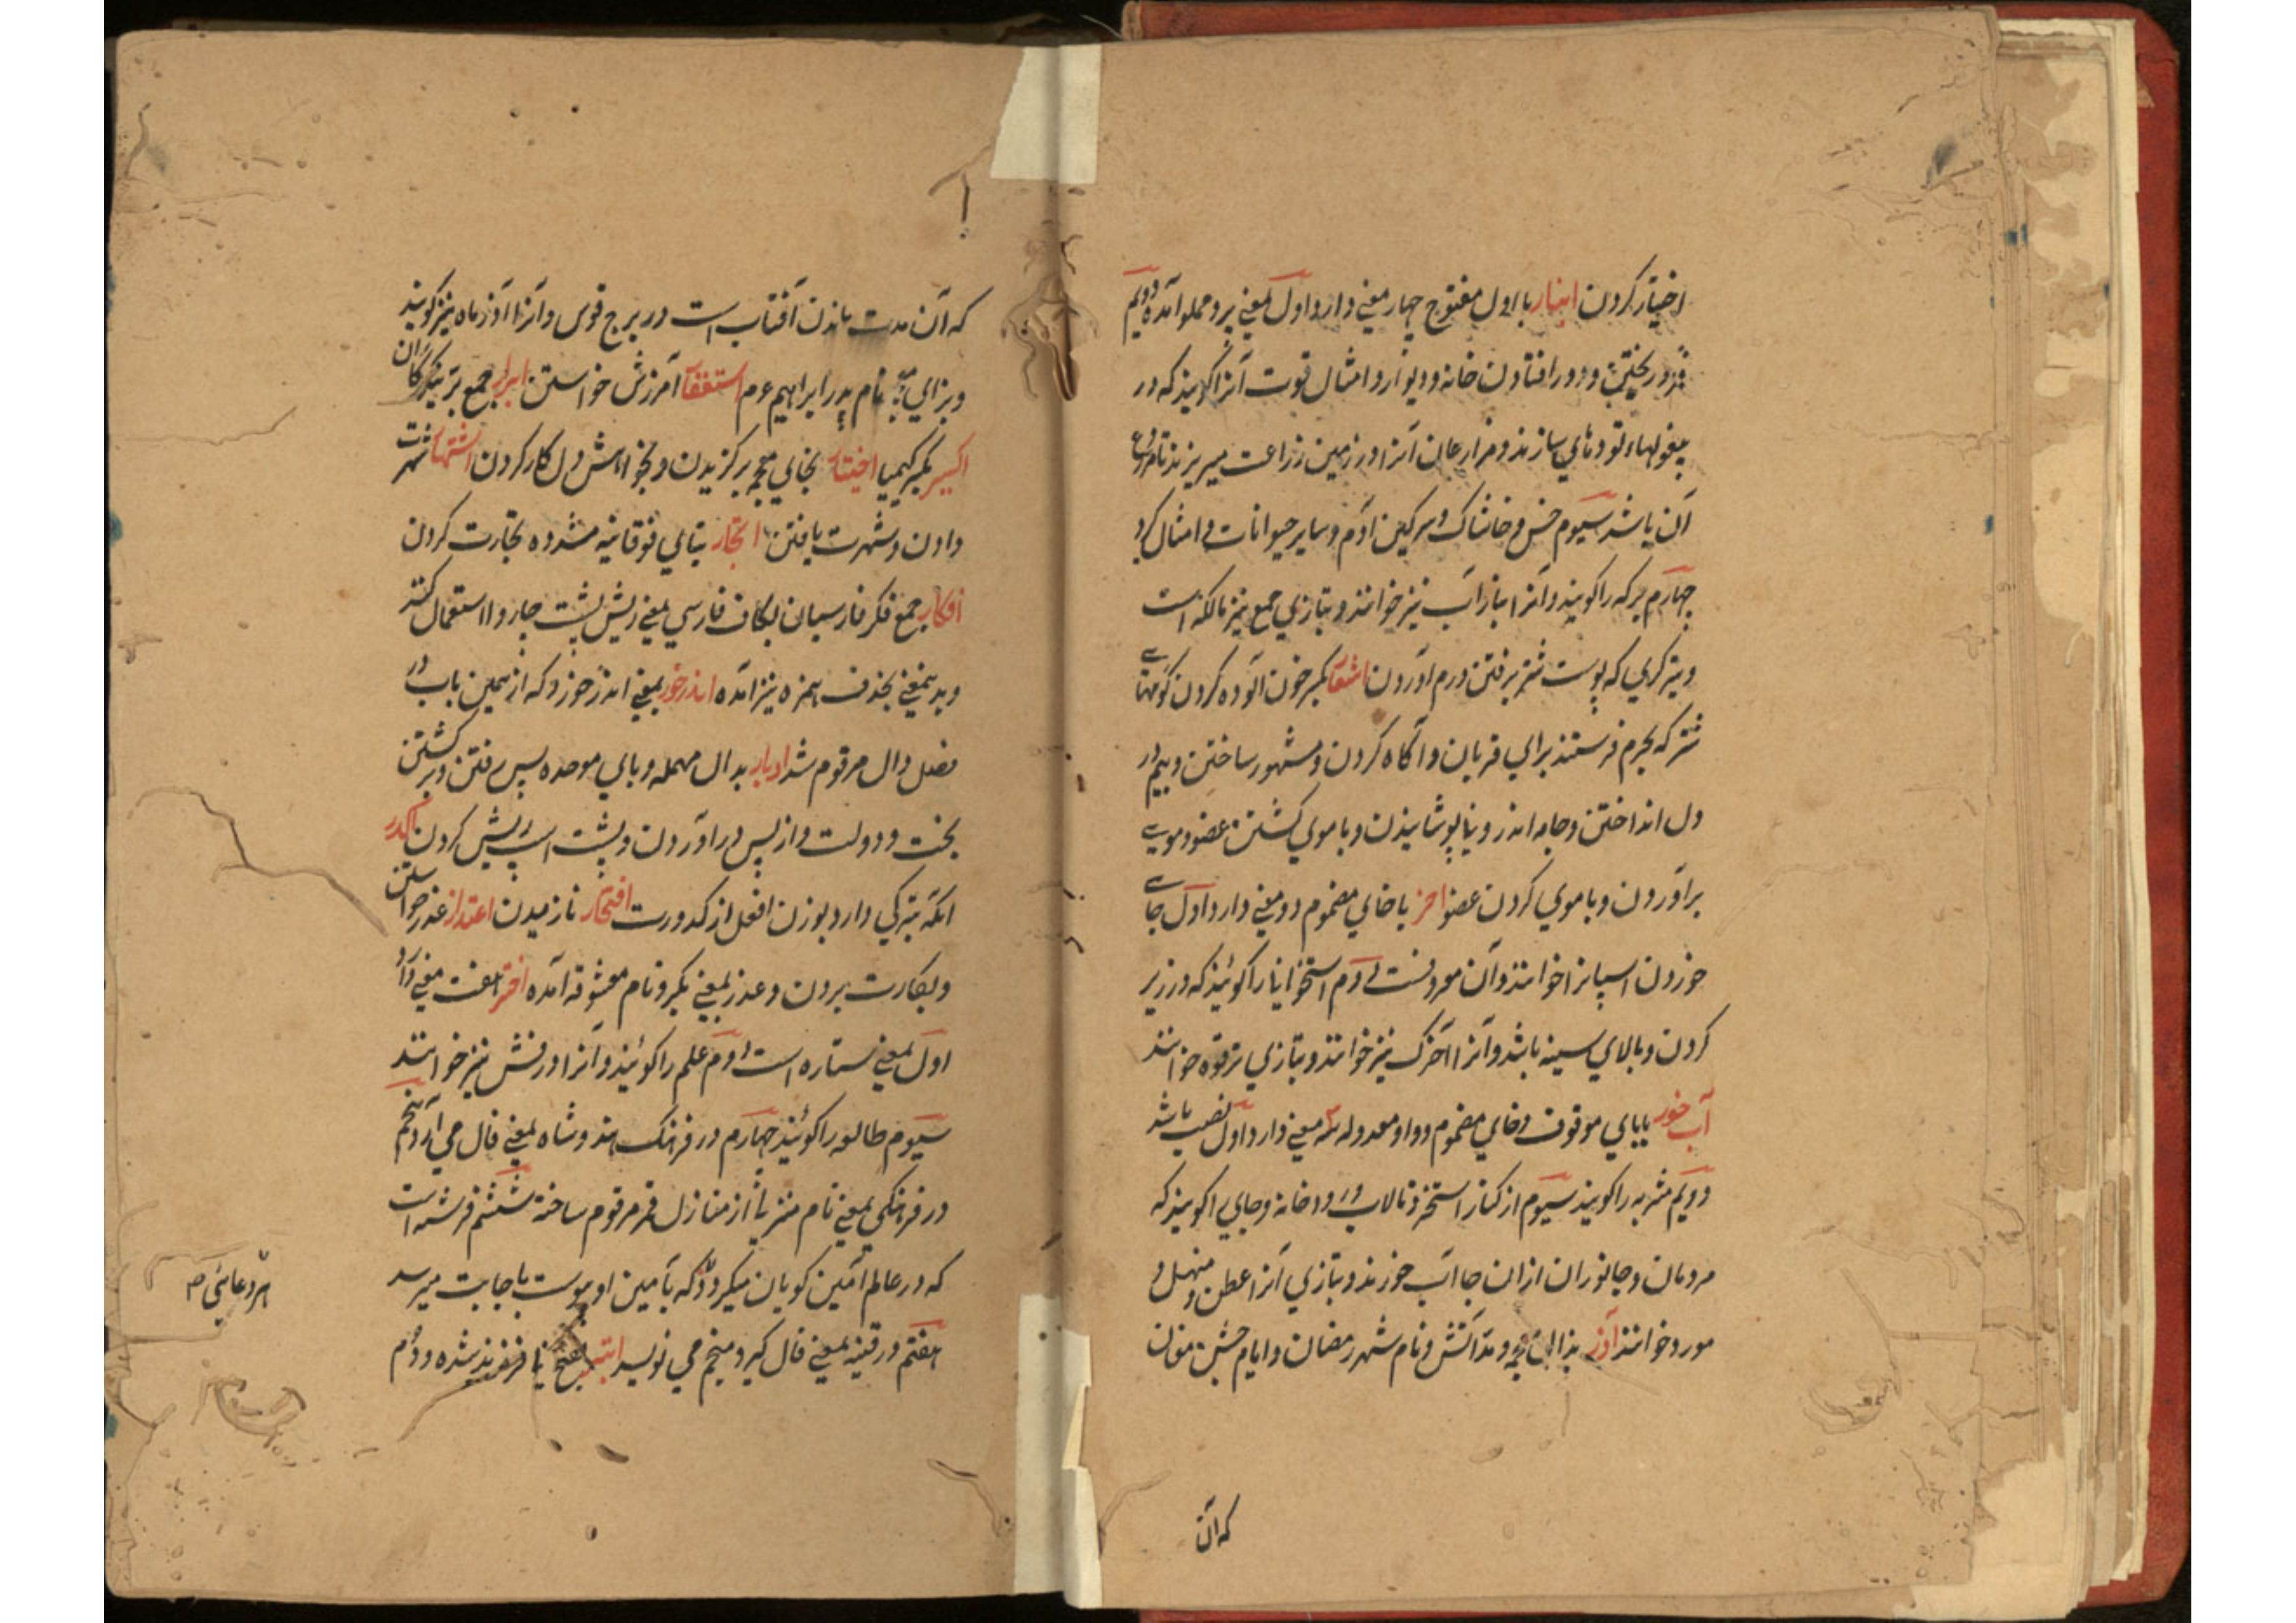 اختیار کردن انبار با اول مفتوح چهار معنی دارد اول بمعنی پر و مملو آمده دویم
فرو ریختن و در افتادن خانه و دیوار و امثال آنرا گویند که در
سازند و مزارعان آنرا در زمین زراعت میریزند تا
آن باشد سیوم خس و خاشاک و سرکین آدم و سایر حیوانات و امثال کرد
چهارم برکه را کویند و آنرا انبار آب نیز خوانند و بتازی جمع نیز مالکنه است
که پوست شتر برفتن درم آوردن اشعار بکسر خون آلوده کردن
شتر که بحرم فرستند برای قربان و آکاه کردن و مشهور ساختن و بیم در
دل انداختن و جامه اندرونی پوشانیدن و با موی کشتن عضو و موی
برآوردن و با موی کردن عضو اخر با خای مضموم دو معنی دارد اول جای
خوردن اسپانرا خوانند و آن معروفست دوم استخوانیا را کویند که در زیر
کردن و بالای سینه باشد و آنرا آخرک نیز خوانند و بتازی ترقوه خوانند
آب خور بابای موقوف و خای مضموم و واو معدوله سه معنی دارد اول نصیب باشد
دویم مشربه را کویند سیوم از کنار استخر و تالاب و رودخانه و جای را کویند که
مردمان و جانوران ازان جا آب خورند و بتازی آنرا عطن و منهل و
مورد خوانند آذر بذال معجمه آتش و نام شهر رمضان و ایام جشن مغان
که آن
که آن مدت ماندن آفتاب است در برج قوس و آنرا آذر ماه نیز کویند
و بزای نام پدر ابراهیم عم استغفار آمرزش خواستن ابرار جمع بر نیکوکاران
اکسیر بکسر کیمیا اختیار بخای معجمه برکزیدن و بخواهش دل کار کردن اشتهار شهرت
دادن و شهرت یافتن اتجار بتای فوقانیه مشدده تجارت کردن
افکار جمع فکر فارسیان بکاف فارسی بمعنی ریش پشت چاروا استعمال کنند
و بدینمعنی بحذف همزه نیز آمده اندرخور بمعنی اندر خورد که از همین باب در
فصل دال مرقوم شد ادبار بدال مهمله و بای موحده پس رفتن و برکشتن
بخت و دولت و از پس درآوردن و پشت اسپ ریش کردن اکدر
آنکه تیرکی دارد بوزن افعل از کدورت افتخار نازیدن اعتذار عذر خواستن
و بکارت بردن و عذر بمعنی بکر و نام معشوقه آمده اختر هفت معنی دارد
اول بمعنی ستاره است دوم علم را کویند و آنرا درفش نیز خوانند
سیوم طالع را کویند چهارم در فرهنک هندوشاه بمعنی فال می آرد پنجم
در فرهنکی بمعنی نام منزیا از منازل قمر مرقوم ساخته ششم فرشته است
که در عالم آمین کویان میکردد که بآمین او پیوست باجابت میرسد
هفتم در قنیه بمعنی فال کیر و منجم می نویسد ابتر بفتح تا فرزند شده و دم